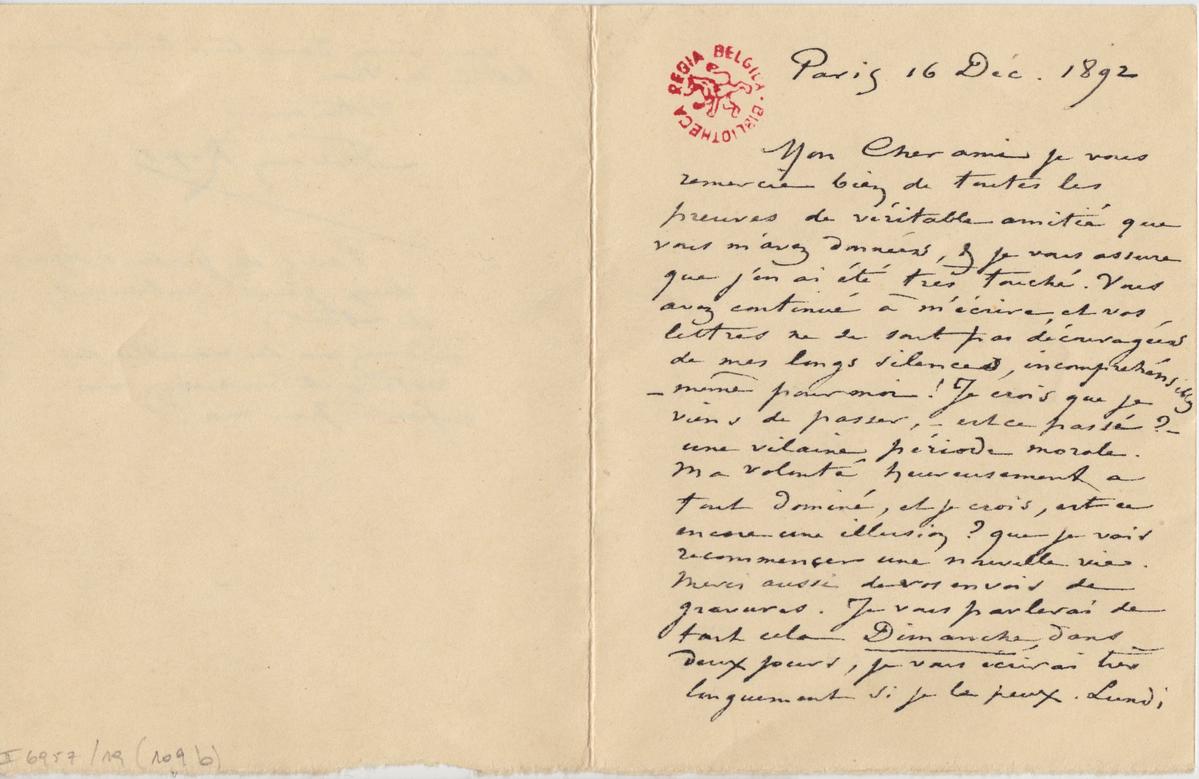 REGIA BELGICA · BIBLIOTHECA
Paris 16 Déc. 1892
Mon Cher ami je vous
remercie bien de toutes les
preuves de véritable amitié que
vous m'avez données, & je vous assure
que j'en ai été très touché. Vous
avez continué à m'écrire, et vos
lettres ne se sont pas découragées
de mes longs silences, incompréhensibles
– même pour moi ! Je crois que je
viens de passer, – est ce passé ? –
une vilaine période morale.
Ma volonté heureusement a
tout dominé, et je crois, est ce
encore une illusion ? que je vais
recommencer une nouvelle vie.
Merci aussi de vos envois de
gravures. Je vous parlerai de
tout cela Dimanche, dans
deux jours, je vous écrirai très
longuement si je le peux. Lundi
II 6957/19 (109 b)